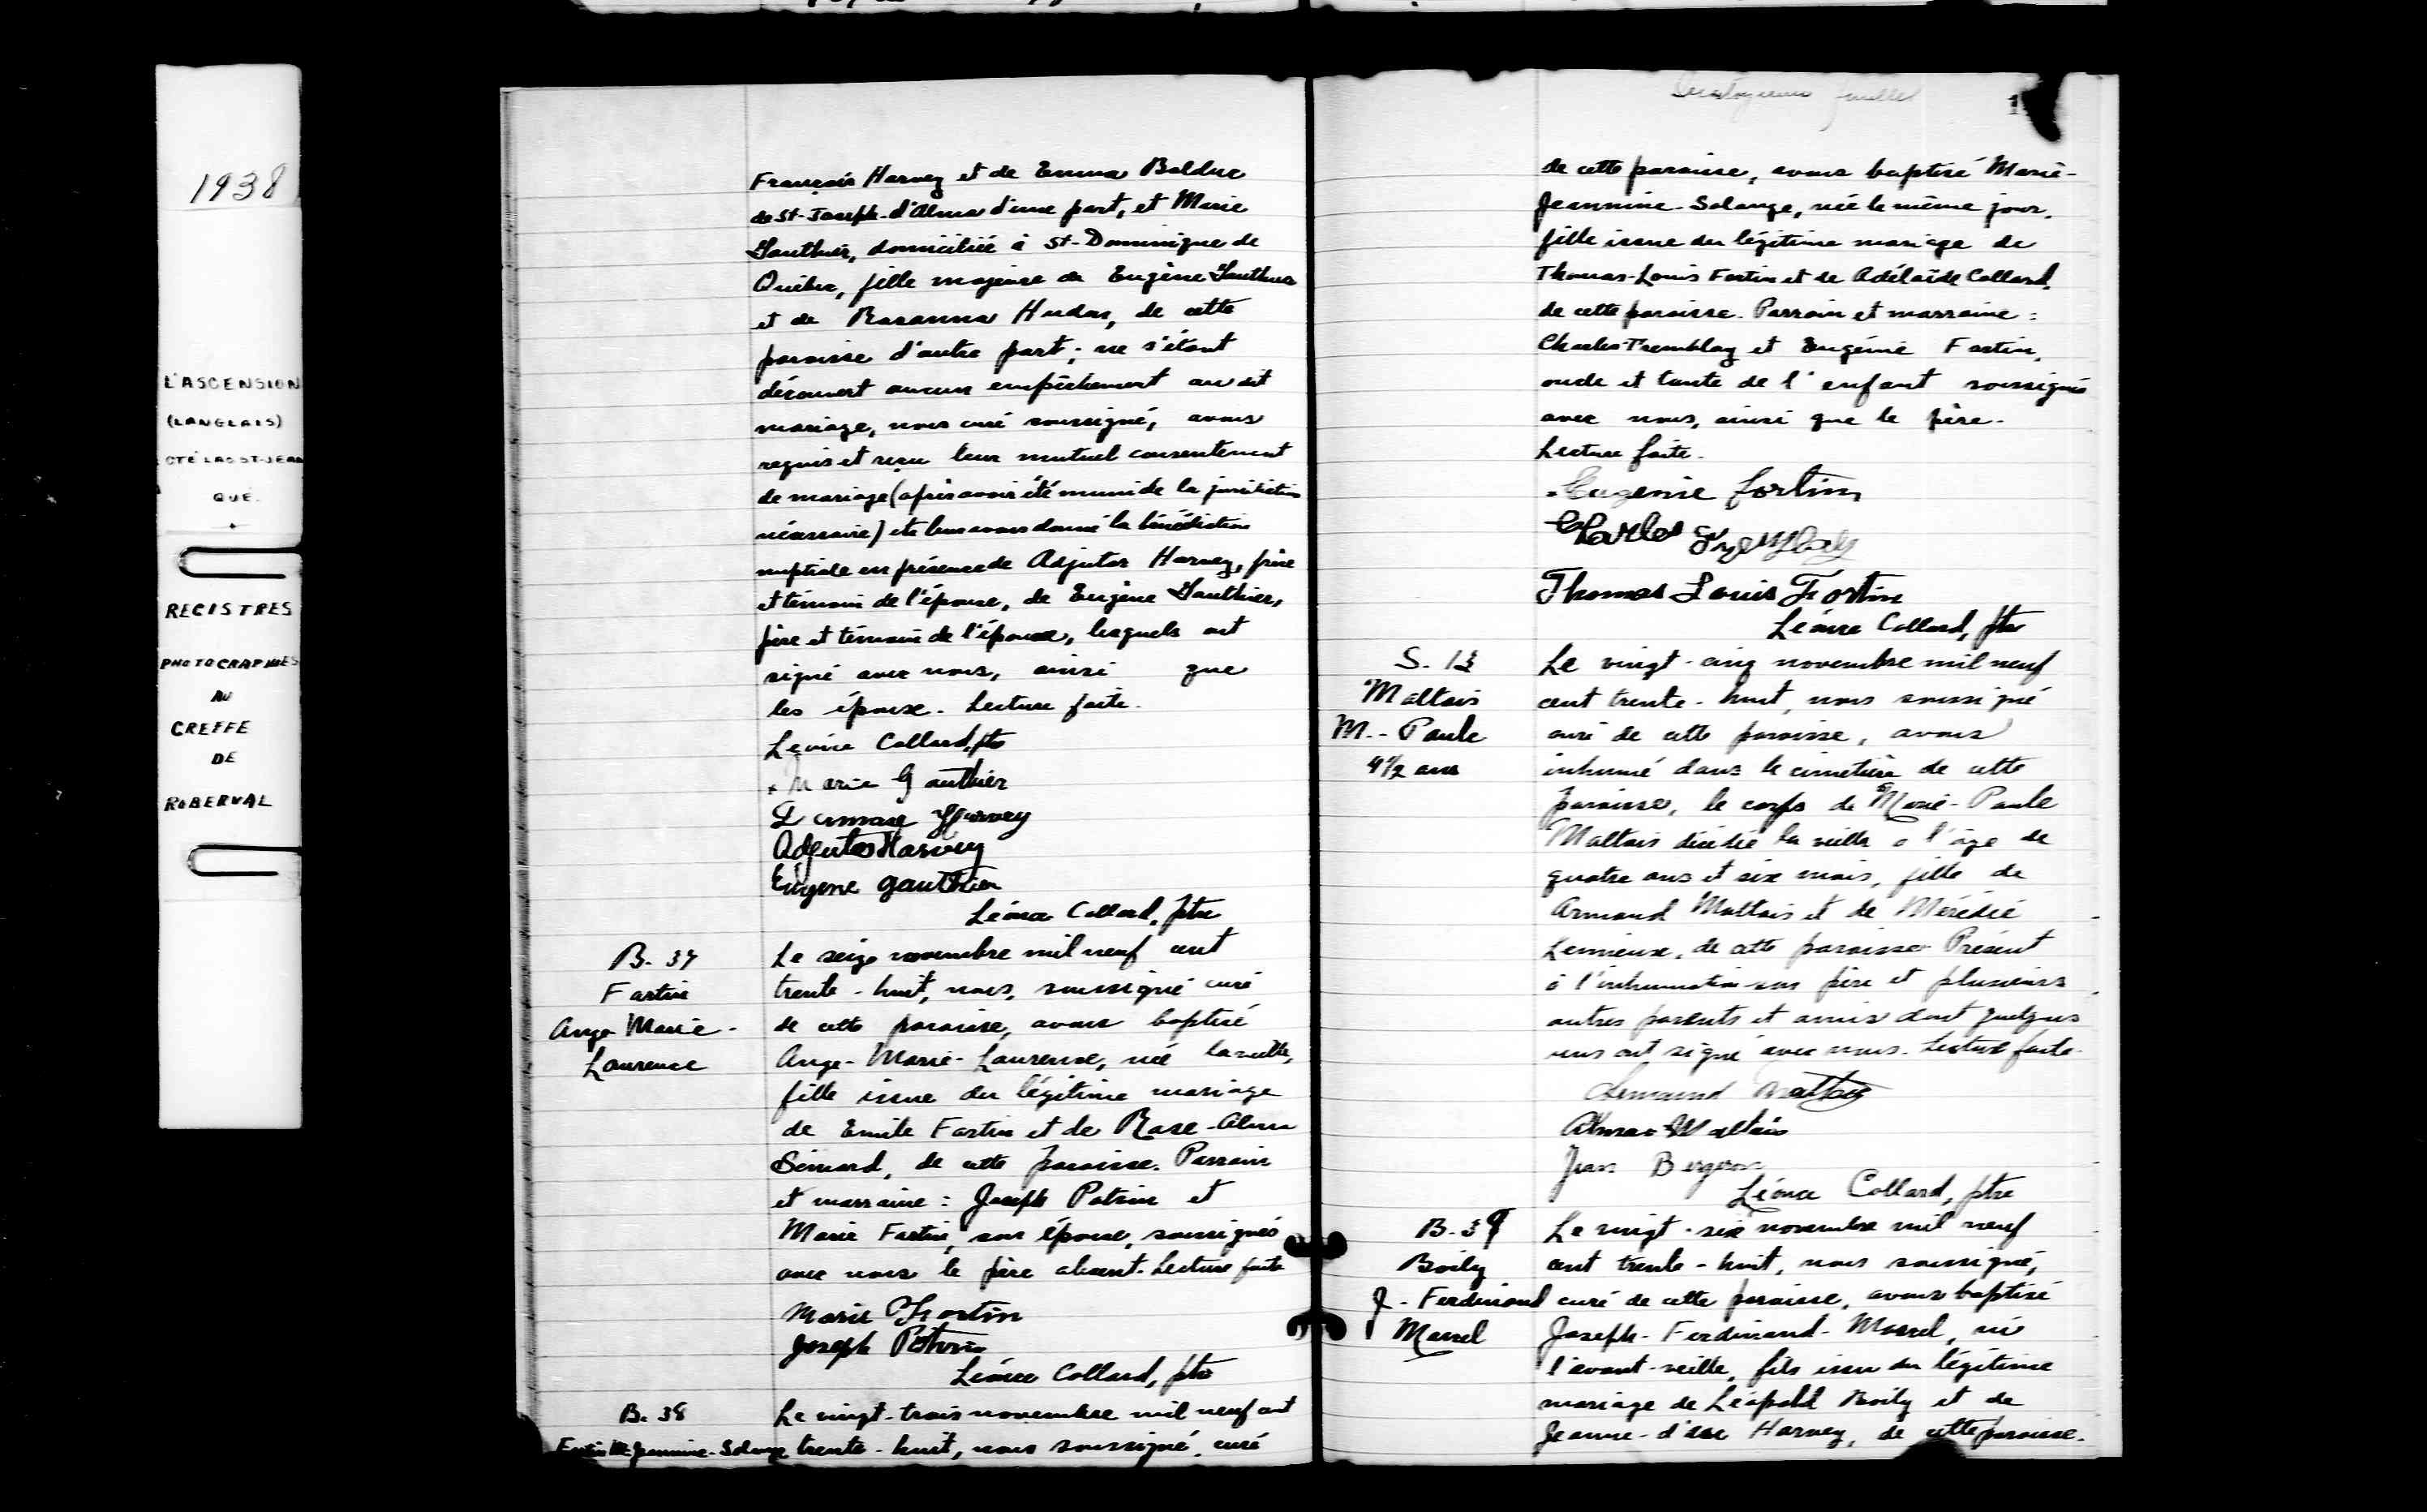 1938
L'ASCENSION
(LANGLAIS)
CTÉ LAC ST-JEAN
QUÉ.
REGISTRES
PHOTOGRAPHIÉS
AU
GREFFE
DE
ROBERVAL
François Harvey et de Emma Bolduc
de St-Joseph-d'Alma d'une part, et Marie
Gauthier, domiciliée à St-Dominique de
Québec, fille majeure de Eugène Gauthier
et de Rosanna Hudon, de cette
paroisse d'autre part; ne s'étant
découvert aucun empêchement au dit
mariage, nous curé soussigné, avons
requis et reçu leur mutuel consentement
de mariage (après avoir été muni de la juridiction
nécessaire) et leur avons donné la bénédiction
nuptiale en présence de Adjutor Harvey, frère
et témoin de l'époux, de Eugène Gauthier,
père et témoin de l'épouse, lesquels ont
signé avec nous, ainsi que
les époux. Lecture faite.
Léonce Collard, ptre
Marie Gauthier
Harvey
Adjutor Harvey
Eugene Gauthier
Léonce Collard, ptre
B. 37
Fortin
Ange Marie-
Laurence
Le seize novembre mil neuf cent
trente-huit, nous, soussigné curé
de cette paroisse, avons baptisé
Ange-Marie-Laurence, née la veille,
fille issue du légitime mariage
de Emile Fortin et de Rose-Alma
Simard, de cette paroisse. Parrain
et marraine: Joseph Potvin et
Marie Fortin, son épouse, soussignés
avec nous le père absent. Lecture faite
Marie Fortin
Joseph Potvin
Léonce Collard, ptre
B. 38
Fortin M-Jeannine-Solange
Le vingt-trois novembre mil neuf cent
trente-huit, nous soussigné, curé
feuillet
de cette paroisse, avons baptisé Marie-
Jeannine-Solange, née le même jour,
fille issue du légitime mariage de
Thomas-Louis Fortin et de Adélaïde Collard,
de cette paroisse. Parrain et marraine:
Charles Tremblay et Eugénie Fortin,
oncle et tante de l'enfant soussignés
avec nous, ainsi que le père.
Lecture faite.
Eugenie Fortin
Charles Tremblay
Thomas Louis Fortin
Léonce Collard, ptre
S. 13
Maltais
M.-Paule
4½ ans
Le vingt-cinq novembre mil neuf
cent trente-huit, nous soussigné
curé de cette paroisse, avons
inhumé dans le cimetière de cette
paroisse, le corps de Marie-Paule
Maltais décédée la veille à l'âge de
quatre ans et six mois, fille de
Armand Maltais et de Mérédié
Lemieux, de cette paroisse. Présent
à l'inhumation son père et plusieurs
autres parents et amis dont quelques
uns ont signé avec nous. Lecture faite.
Armand Maltais
Maltais
Jean Bergeron
Léonce Collard, ptre
B. 39
Boily
J-Ferdinand
Marcel
Le vingt-six novembre mil neuf
cent trente-huit, nous soussigné,
curé de cette paroisse, avons baptisé
Joseph-Ferdinand-Marcel, né
l'avant-veille, fils issu du légitime
mariage de Léopold Boily et de
Jeanne-d'arc Harvey, de cette paroisse.